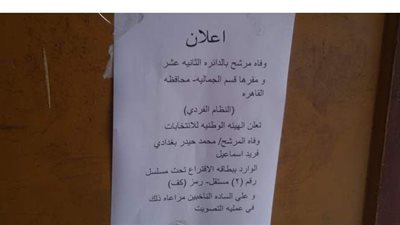 اعلان
وفاه مرشح بالدائره الثانيه عشر
و مقرها قسم الجماليه- محافظه
القاهره
(النظام الفردي)
تعلن الهيئه الوطنيه للانتخابات
وفاه المرشح/ محمد حيدر بغدادي
فريد اسماعيل
الوارد ببطاقه الاقتراع تحت مسلسل
رقم (٢) مستقل- رمز (كف)
و علي الساده الناخبين مراعاه ذلك
في عمليه التصويت